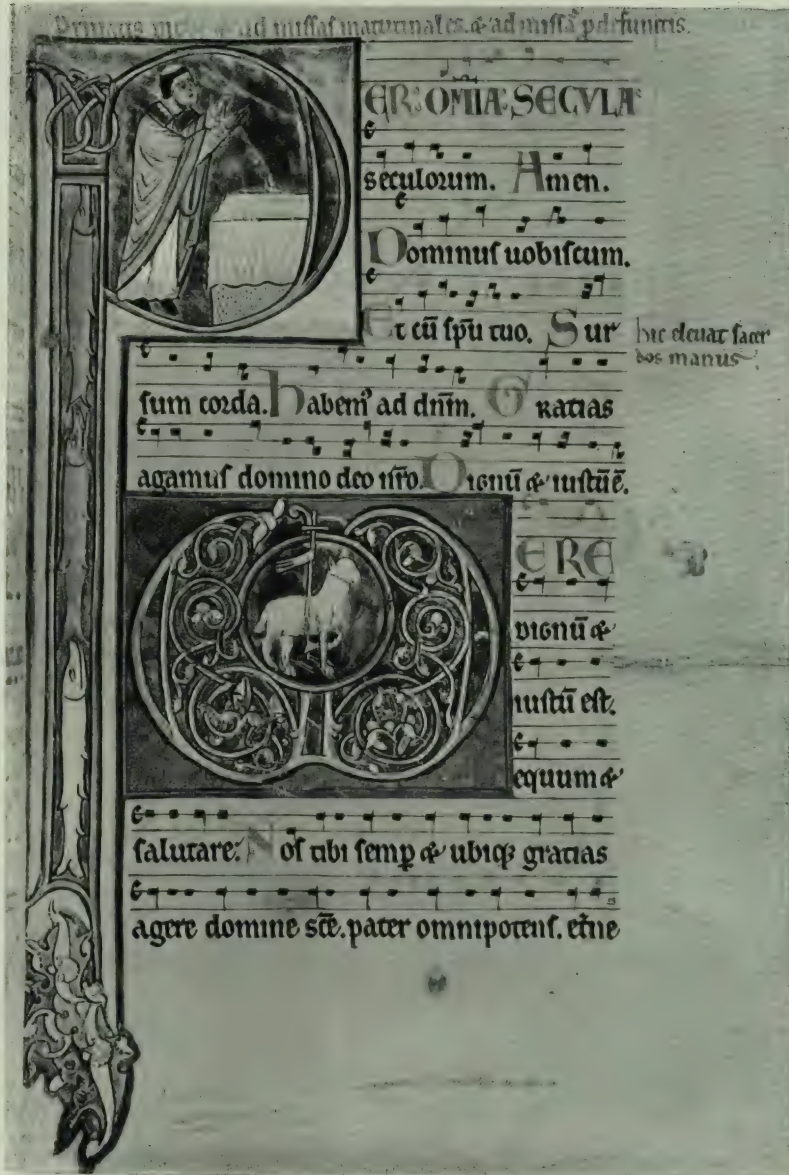 & ad missas matutinales. & ad missā p defunctis.
PER: OM̄IA: SECVLA
seculorum. Amen.
Dominuſ uobiſcum.
Et cū ſpū tuo. Sur
hic eleuat ſacer
dos manus
ſum corda. Habemꝰ ad dn̄m. Gratias
agamuſ domino deo nr̄o. Dignū & iuſtū ē.
VERE
dignū &
iuſtū eſt.
equum &
ſalutare. Noſ tibi ſemꝑ & ubiqꝫ gratias
agere domine ſc̄e. pater omnipotenſ. et̄ne